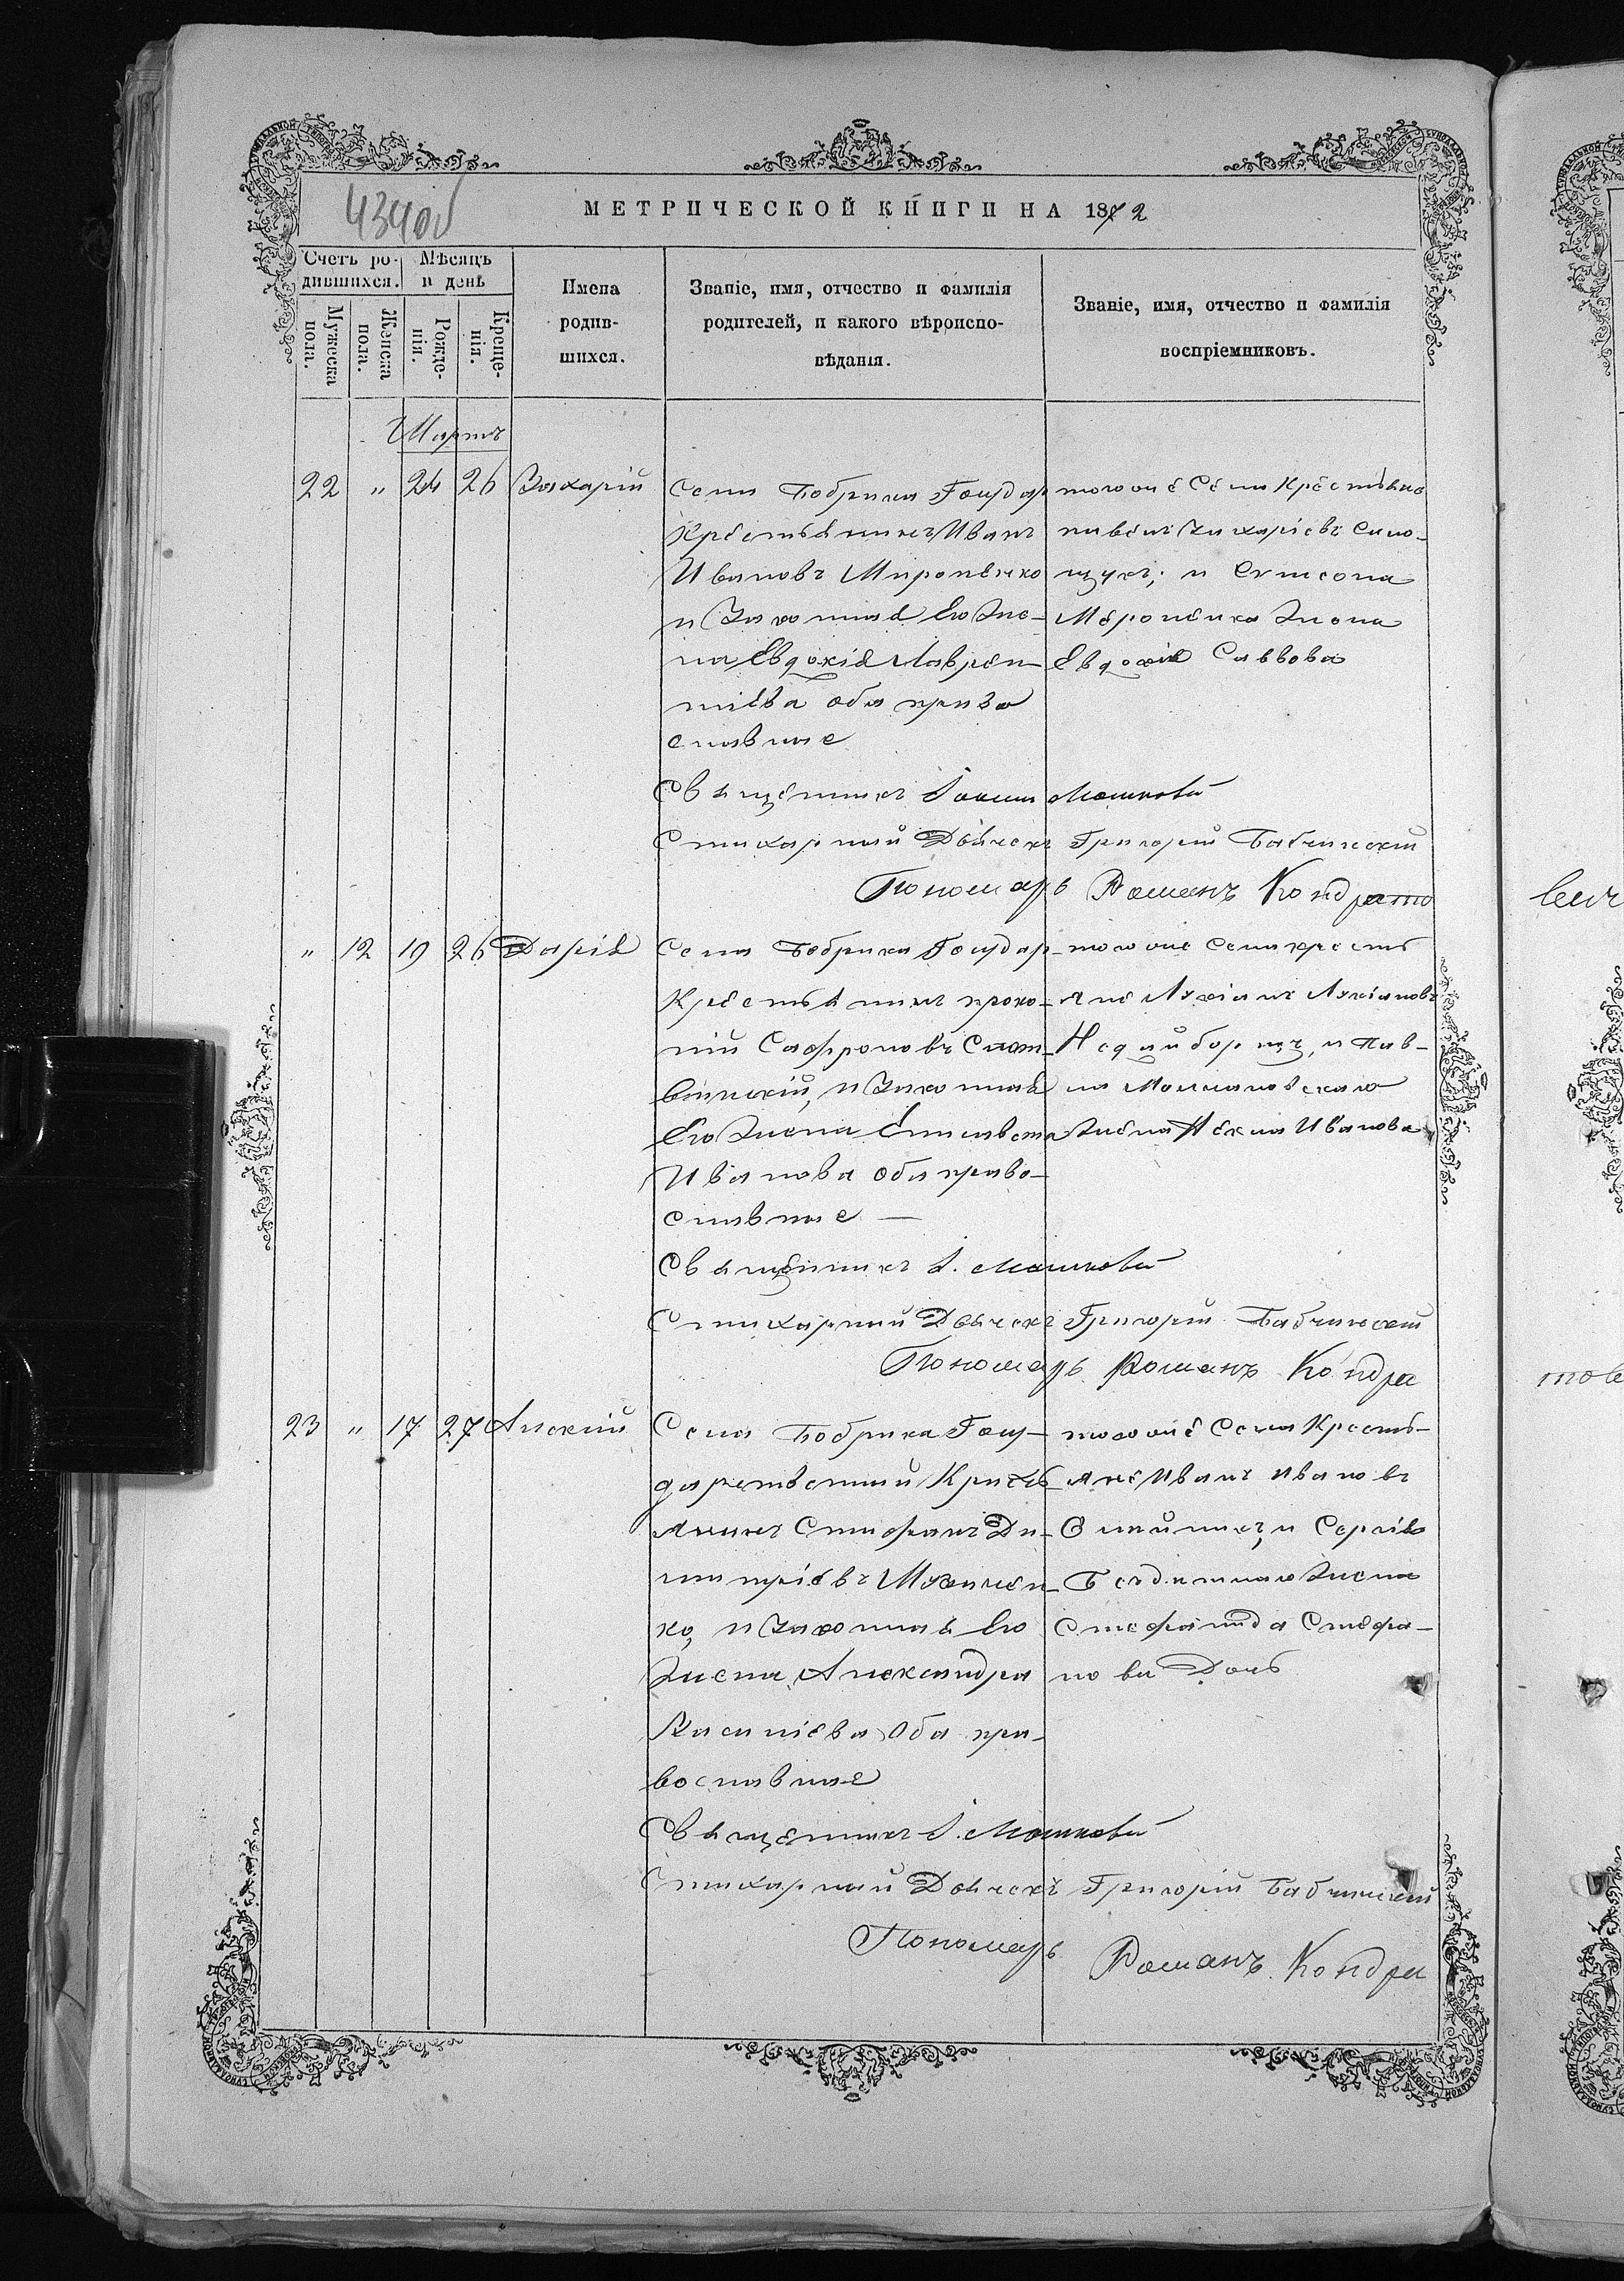 434об
МЕТРИЧЕСКОЙ КНИГИ НА 1872
Счетъ ро-
дившихся.
Мѣсяцъ
и день
Мужеска
пола.
Женска
пола.
Рожде-
нія.
Креще-
нія.
Имена
родив-
шихся.
Званіе, имя, отчество и фамилія
родителей, и какого вѣроиспо-
вѣданія.
Званіе, имя, отчество и фамилія
воспріемниковъ.
Мартъ
22 " 24 26 Захарій
Села Бобрика Государ
Крестьянинъ Иванъ
Ивановъ Мироненко
и Законная Его Же-
на Евдокія Лаврен-
тіева оба право
славные
тогоже Села Крестьяне
Захаріевъ
и
Мероненка Жена
Евдокія Саввова
Священникъ Іоаннъ
Стихарный Дьячекъ Григорій Бабчинскій
Пономарь Романъ Кондрато
" 12 19 26 Дарія
Села Бобрика Государ-
Крестьянинъ Проко-
пій Софроновъ
и Законная
Его Жена Елисавета
Ивановa оба право-
славные —
тогоже Села крестъ
яне Лукіанъ Лукіановъ
Недайборщъ, и Пав-
ла
Жена Текла Иванова
Священникъ І.
Стихарный Дьячекъ Григорій Бабчинскій
Пономарь Романъ Кондра
23 " 17 27 Алексій
Села Бобрика Госу-
дарственный Кресть
янинъ Стефанъ Ди-
митріевъ
ко, и Законная Его
Жена Александра
Василіева Оба пра-
вославные
тогоже Села Кресть-
яне Иванъ Ивановъ
Олийникъ, и Сергія
Жена
Стефанида Стефа-
нова Дочь
Священникъ І.
Стихарный Дьячекъ Григорій Бабчинскій
Пономарь Романъ Кондра